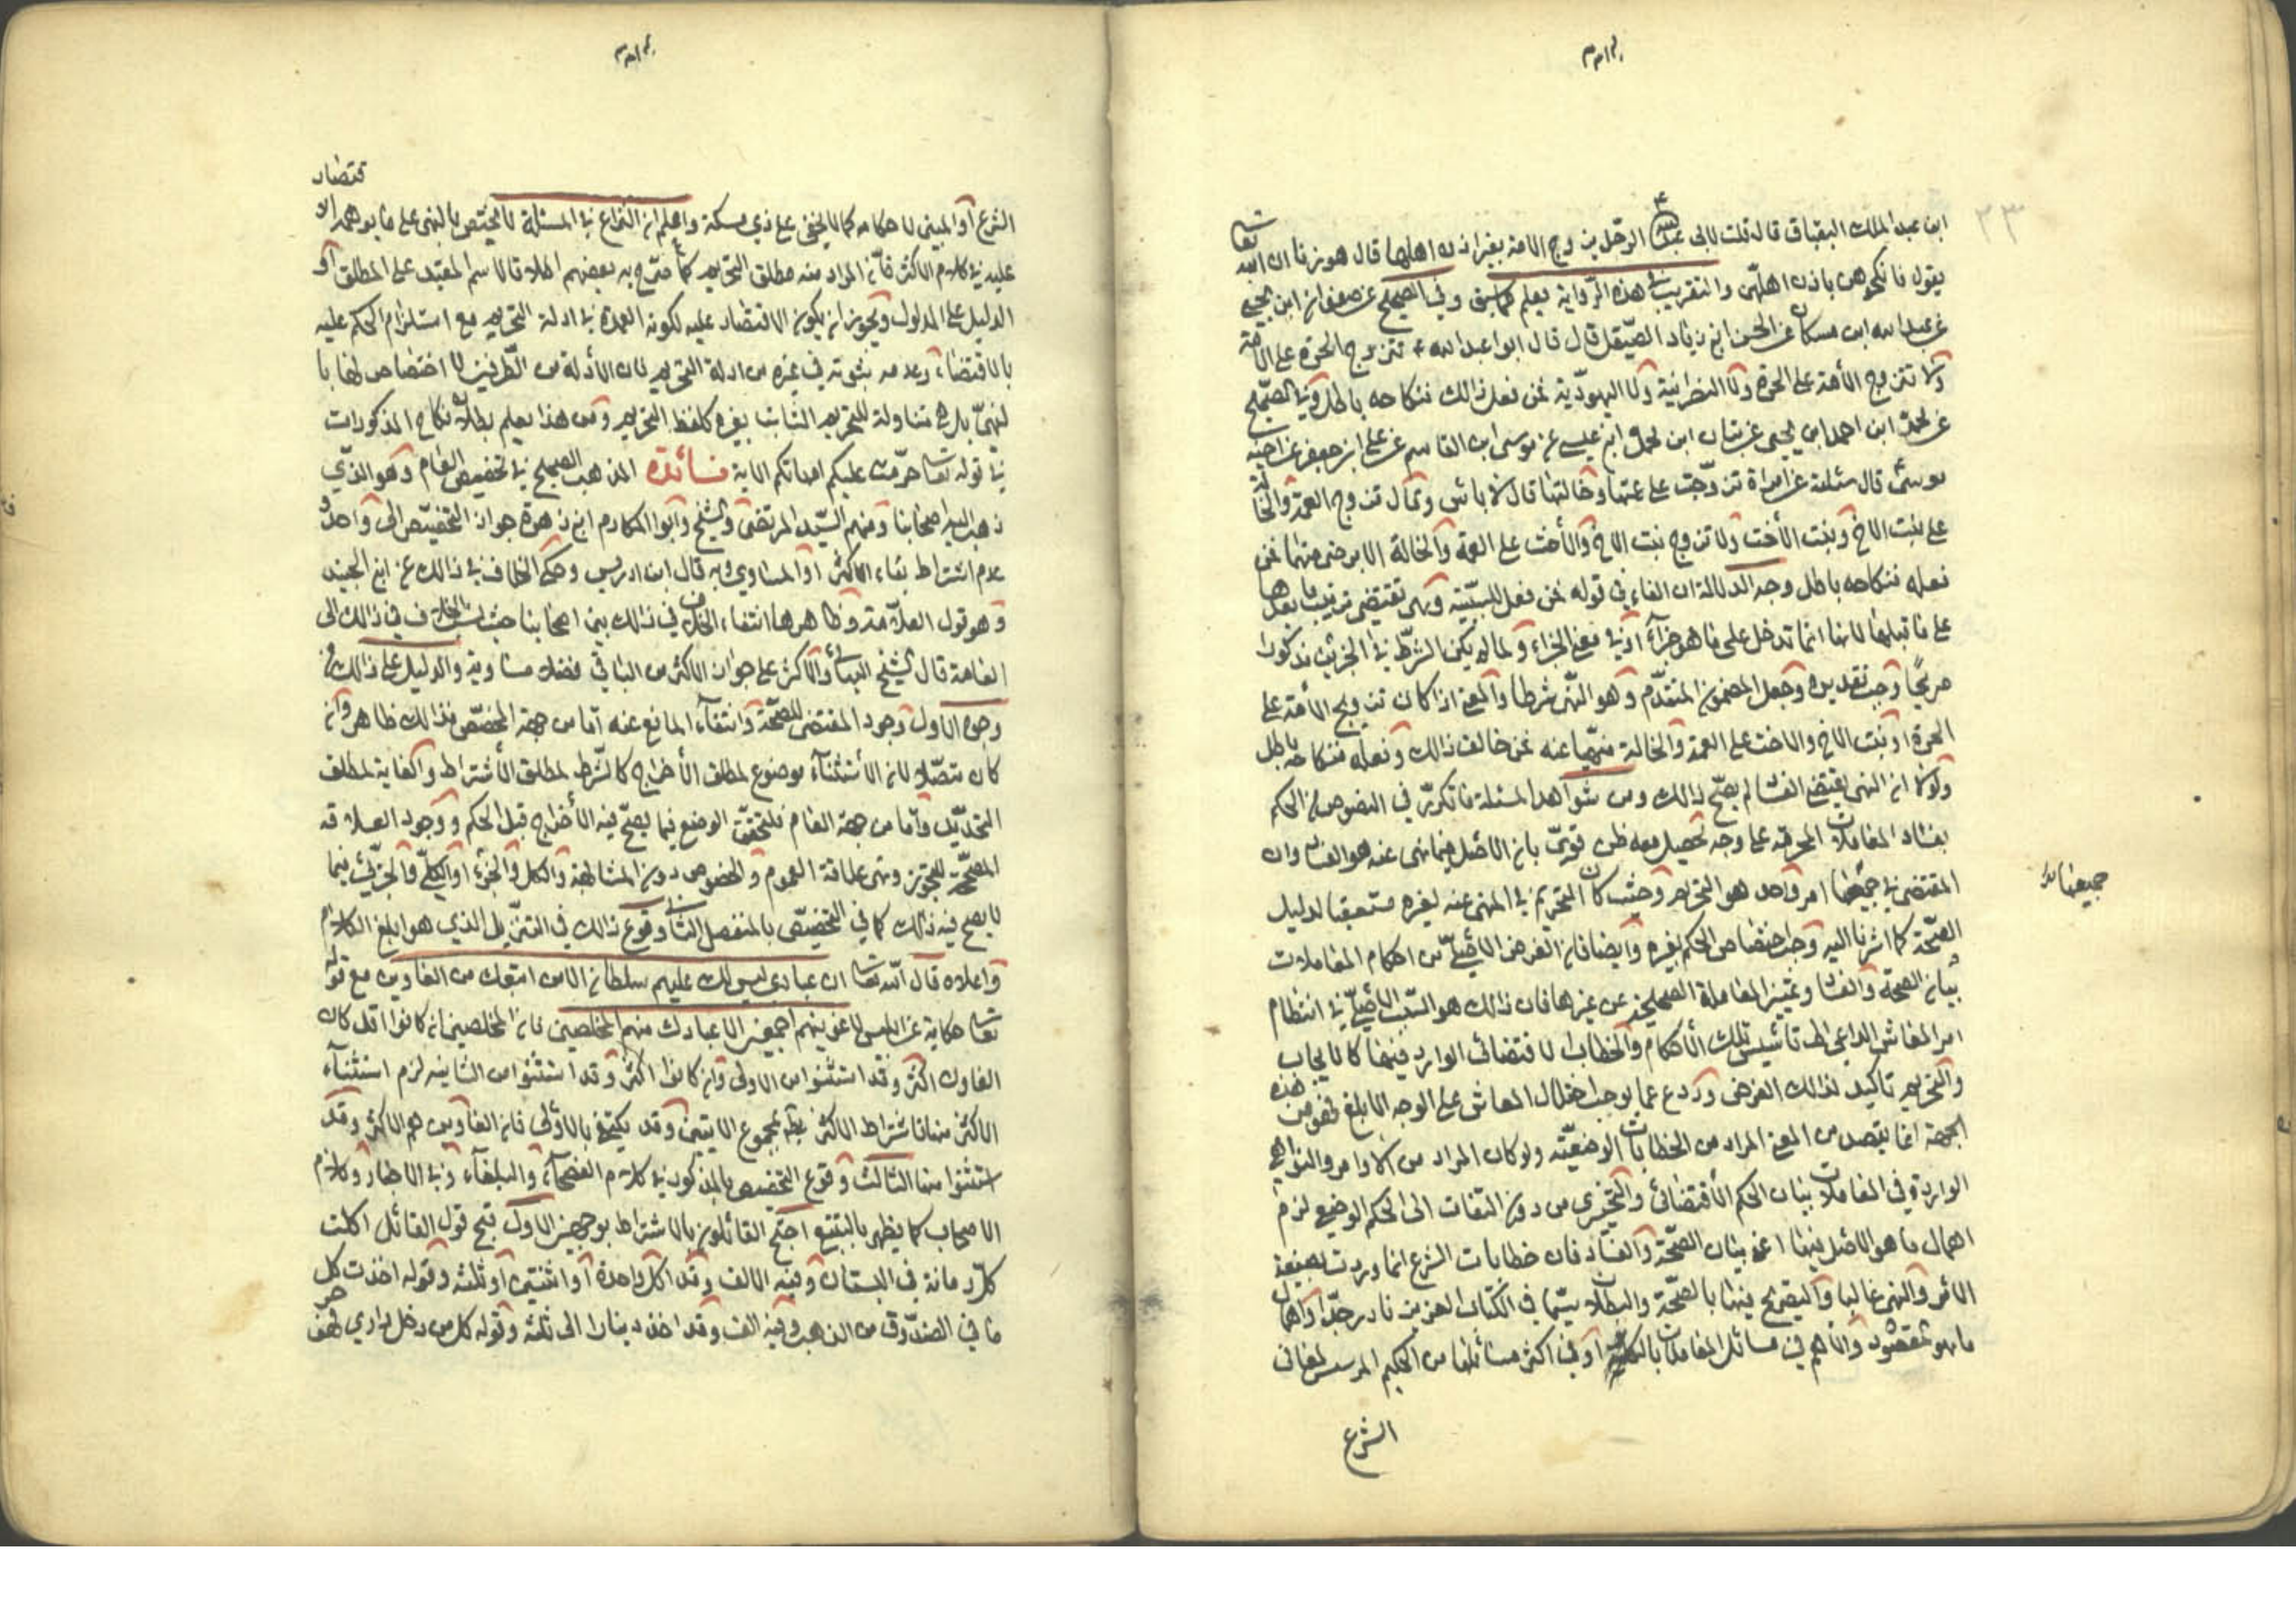 ابن عبد الملك البقباق قال قلت لابى عبد الله ع الرجل يتزوج الامة بغير اذن اهلها قال هو زنا ان الله تعا
يقول فانكحوهن باذن اهلهن والتقريب فى هذه الرواية يعلم كما سبق وفى الصحيح عن صفوان ابن يحيى
عن عبد الله ابن مسكان عن الحسن ابن زياد الصيقل قال قال ابو عبد الله ع تتزوج الحرة على الامة
ولا تتزوج الأمة على الحرة ولا النصرانية ولا اليهودية فمن فعل ذالك فنكاحه باطل وفى الصحيح
عن محمد ابن احمد ابن يحيى عن بنان ابن محمد ابن عيسى عن موسى ابن القاسم عن على ابن جعفر عن اخيه
موسى قال سئلته عن امراة تزوجت على عمتها وخالتها قال لا باس وقال تزوج العمة والخالة
على بنت الاخ وبنت الأخت ولا تزوج بنت الاخ والأخت على العمة والخالة الا برضى منهما فمن
فعله فنكاحه باطل وجه الدلالة ان الفاء فى قوله فمن فعل للسببية وهى تقتضى ترتيب ما بعدها
على ما قبلها لانها انما تدخل على ما هو جزآء او فى معنى الجزاء ولما لم يكن الشرط فى الخبرين مذكورا
صريحًا وجب تقديره وجعل المضمون المتقدم وهو النهى شرطا والمعنى اذا كان تزويج الأمة على
الحرة او بنت الاخ والاخت على العمة والخالة منهيا عنه فمن خالف ذالك وفعله فنكاحه باطل
ولولا ان النهى يقتضى الفساد لم يصح ذالك ومن شواهد المسئلة ما تكرر فى النصوص من الحكم
بفساد المعاملات المحرمة على وجه تحصيل معه ظن قوى بان الأصل فيما نهى عنه هو الفساد وان
المقتضى فى جميعها امر واحد هو التحريم وحيث كان التحريم فى المنهى عنه لغيره مستعقبا لدليل
الصحة كما اشرنا اليه وجب اختصاص الحكم بغيره وايضا فان الغرض الأصلى من احكام المعاملات
بيان الصحة والفساد وتمييز المعاملة الصحيحة عن غيرها فان ذالك هو السبب الأصلى فى انتظام
امر المعاش الداعى الى تاسيس تلك الأحكام والخطاب الاقتضائى الوارد فيها كالايجاب
والتحريم تاكيد لذالك الغرض وردع عما يوجب اختلال المعاش على الوجه الابلغ فهو من هذه
الجهة انما يقصد من المعنى المراد من الخطابات الوضعية ولو كان المراد من الاوامر والنواهى
الواردة فى المعاملات بيان الحكم الأقتضائى والتخييرى من دون التفات الى الحكم الوضعى لزم
اهمال ما هو الأصل فيها اعنى بيان الصحة والفساد فان خطابات الشرع انما وردت بصيغة
الأمر والنهى غالبا والتصريح فيها بالصحة والبطلان سيما فى الكتاب العزيز نادر جدا واهمال
ما هو المقصود والأهم فى مسائل المعاملات بالكلية او فى اكثر مسائلها من الحكيم المؤسس لمعانى
جميعها
الشرع
الشرع او المبين لاحكامه كما لا يخفى على ذى مسكة واعلم ان النزاع فى المسئلة لا يختص بالنهى على ما يوهمه الاقتصار
عليه فى كلام الاكثر فان المراد منه مطلق التحريم كما صرح به بعضهم اطلاقا لاسم المقيد على المطلق او
الدليل على المدلول ويجوز ان يكون الاقتصار عليه لكونه العمدة فى ادلة التحريم مع استلزام الحكم عليه
بالاقتضاء وعدمه بثبوته فى غيره من ادلة التحريم فان الأدلة من الطرفين لا اختصاص لها با
لنهى بل هى متناولة للتحريم الثابت بغيره كلفظ التحريم ومن هذا يعلم بطلان نكاح المذكورات
فى قوله تعا حرمت عليكم امهاتكم الاية فـائدة المذهب الصحيح فى تخصيص العام وهو الذى
ذهب اليه اصحابنا ومنهم السيد المرتضى والشيخ وابو المكارم ابن زهرة جواز التخصيص الى واحد و
عدم اشتراط بقاء الاكثر او المساوى وبه قال ابن ادريس وحكى الخلاف فى ذالك عن ابن الجنيد
وهو قول العلامة وظاهرها انتفاء الخلاف فى ذالك بين اصحابنا حيث نسب الخلاف فى ذالك الى
العامة قال الشيخ البهائى والأكثر على جواز الاكثر من الباقى فضلا مساويه والدليل على ذالك من
وجوه الاول وجود المقتضى للصحة وانتفآء المانع عنه اما من جهة المخصص فذالك ظاهر وان
كان متصلا لان الأستثنآء موضوع لمطلق الأخراج كالشرط لمطلق الأشتراط والغاية لمطلق
التحديد واما من جهة العام فلتحقق الوضع فيما يصح فيه الأخراج قبل الحكم ووجود العلاقة
المصححة للتجوز وهى علاقة العموم والخصوص دون المشابهة والكل والجزء او الكلى والجزئى فيما
لا يصح فيه ذالك كما فى التخصيص بالمنفصل الثانى وقوع ذالك فى التنزيل الذي هو ابلغ الكلام
واعلاه قال الله تعا ان عبادى ليس لك عليهم سلطان الا من اتبعك من الغاوين مع قوله
تعا حكاية عن ابليس لاغوينهم اجمعين الا عبادك منهم المخلصين فان المخلصين ان كانوا اقل كان
الغاون اكثر وقد استثنوا من الاولى وان كانوا اكثر وقد استثنوا من الثانية لزم استثنآء
الاكثر منها فاشتراط الاكثر يبطله مجموع الايتين وقد يكتفى بالاولى فان الغاوين هم الاكثر وقد
استثنوا منها الثالث وقوع التخصيص المذكور فى كلام الفصحآء والبلغآء وفى الاخبار وكلام
الاصحاب كما يظهر بالتتبع احتج القائلون بالاشتراط بوجهين الاول قبح قول القائل اكلت
كل رمانة فى البستان وفيه الالف وقد اكل واحدة او اثنتين او ثلثه وقوله اخذت كل
ما فى الصندوق من الذهب وفيه الف وقد اخذ دينارا الى ثلثه وقوله كل من دخل دارى فهو حر